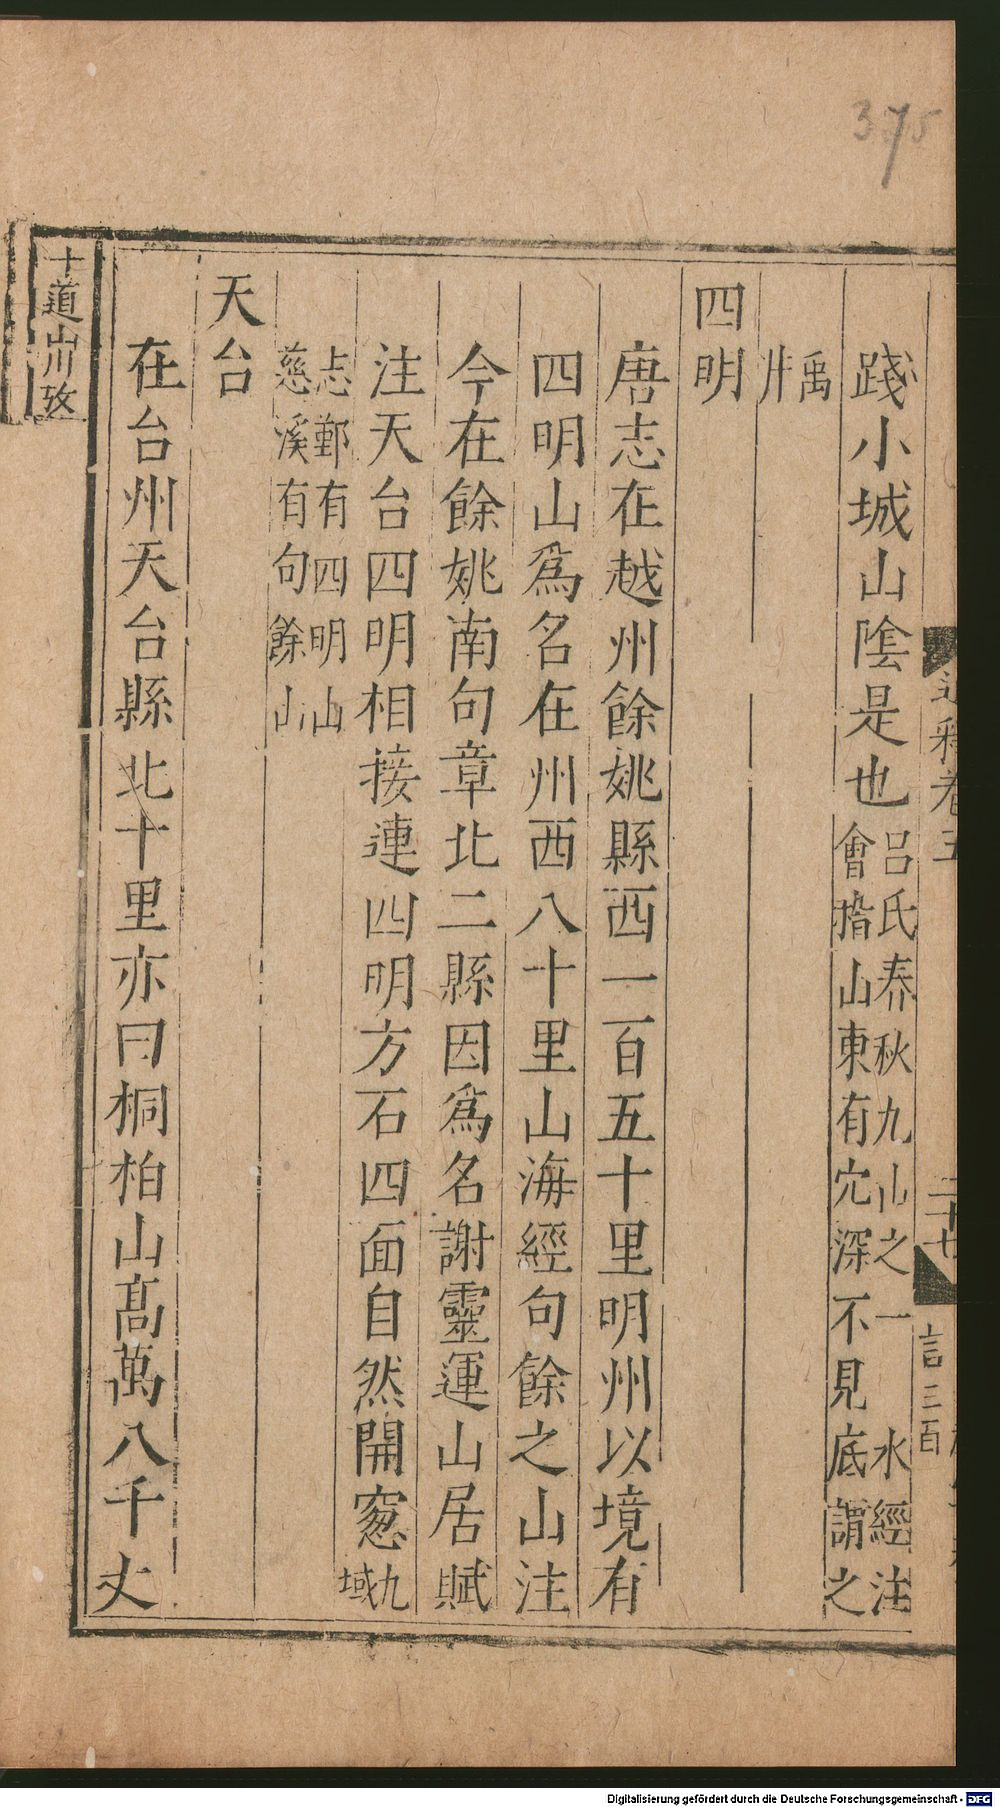 375
踐小城山陰是也呂氏春秋九山之一 水經注
會揩山東有穴深不見底謂之
禹
井
四明
唐志在越州餘姚縣西一百五十里明州以境有
四明山爲名在州西八十里山海經句餘之山注
今在餘姚南句章北二縣因爲名謝靈運山居賦
注天台四明相接連四明方石四面自然開窓九
域
志鄞有四明山
慈溪有句餘山
天台
在台州天台縣北十里亦曰桐柏山高萬八千丈
十道山川攷
卷五
二十七
言三百
Digitalisierung gefördert durch die Deutsche Forschungsgemeinschaft - DFG